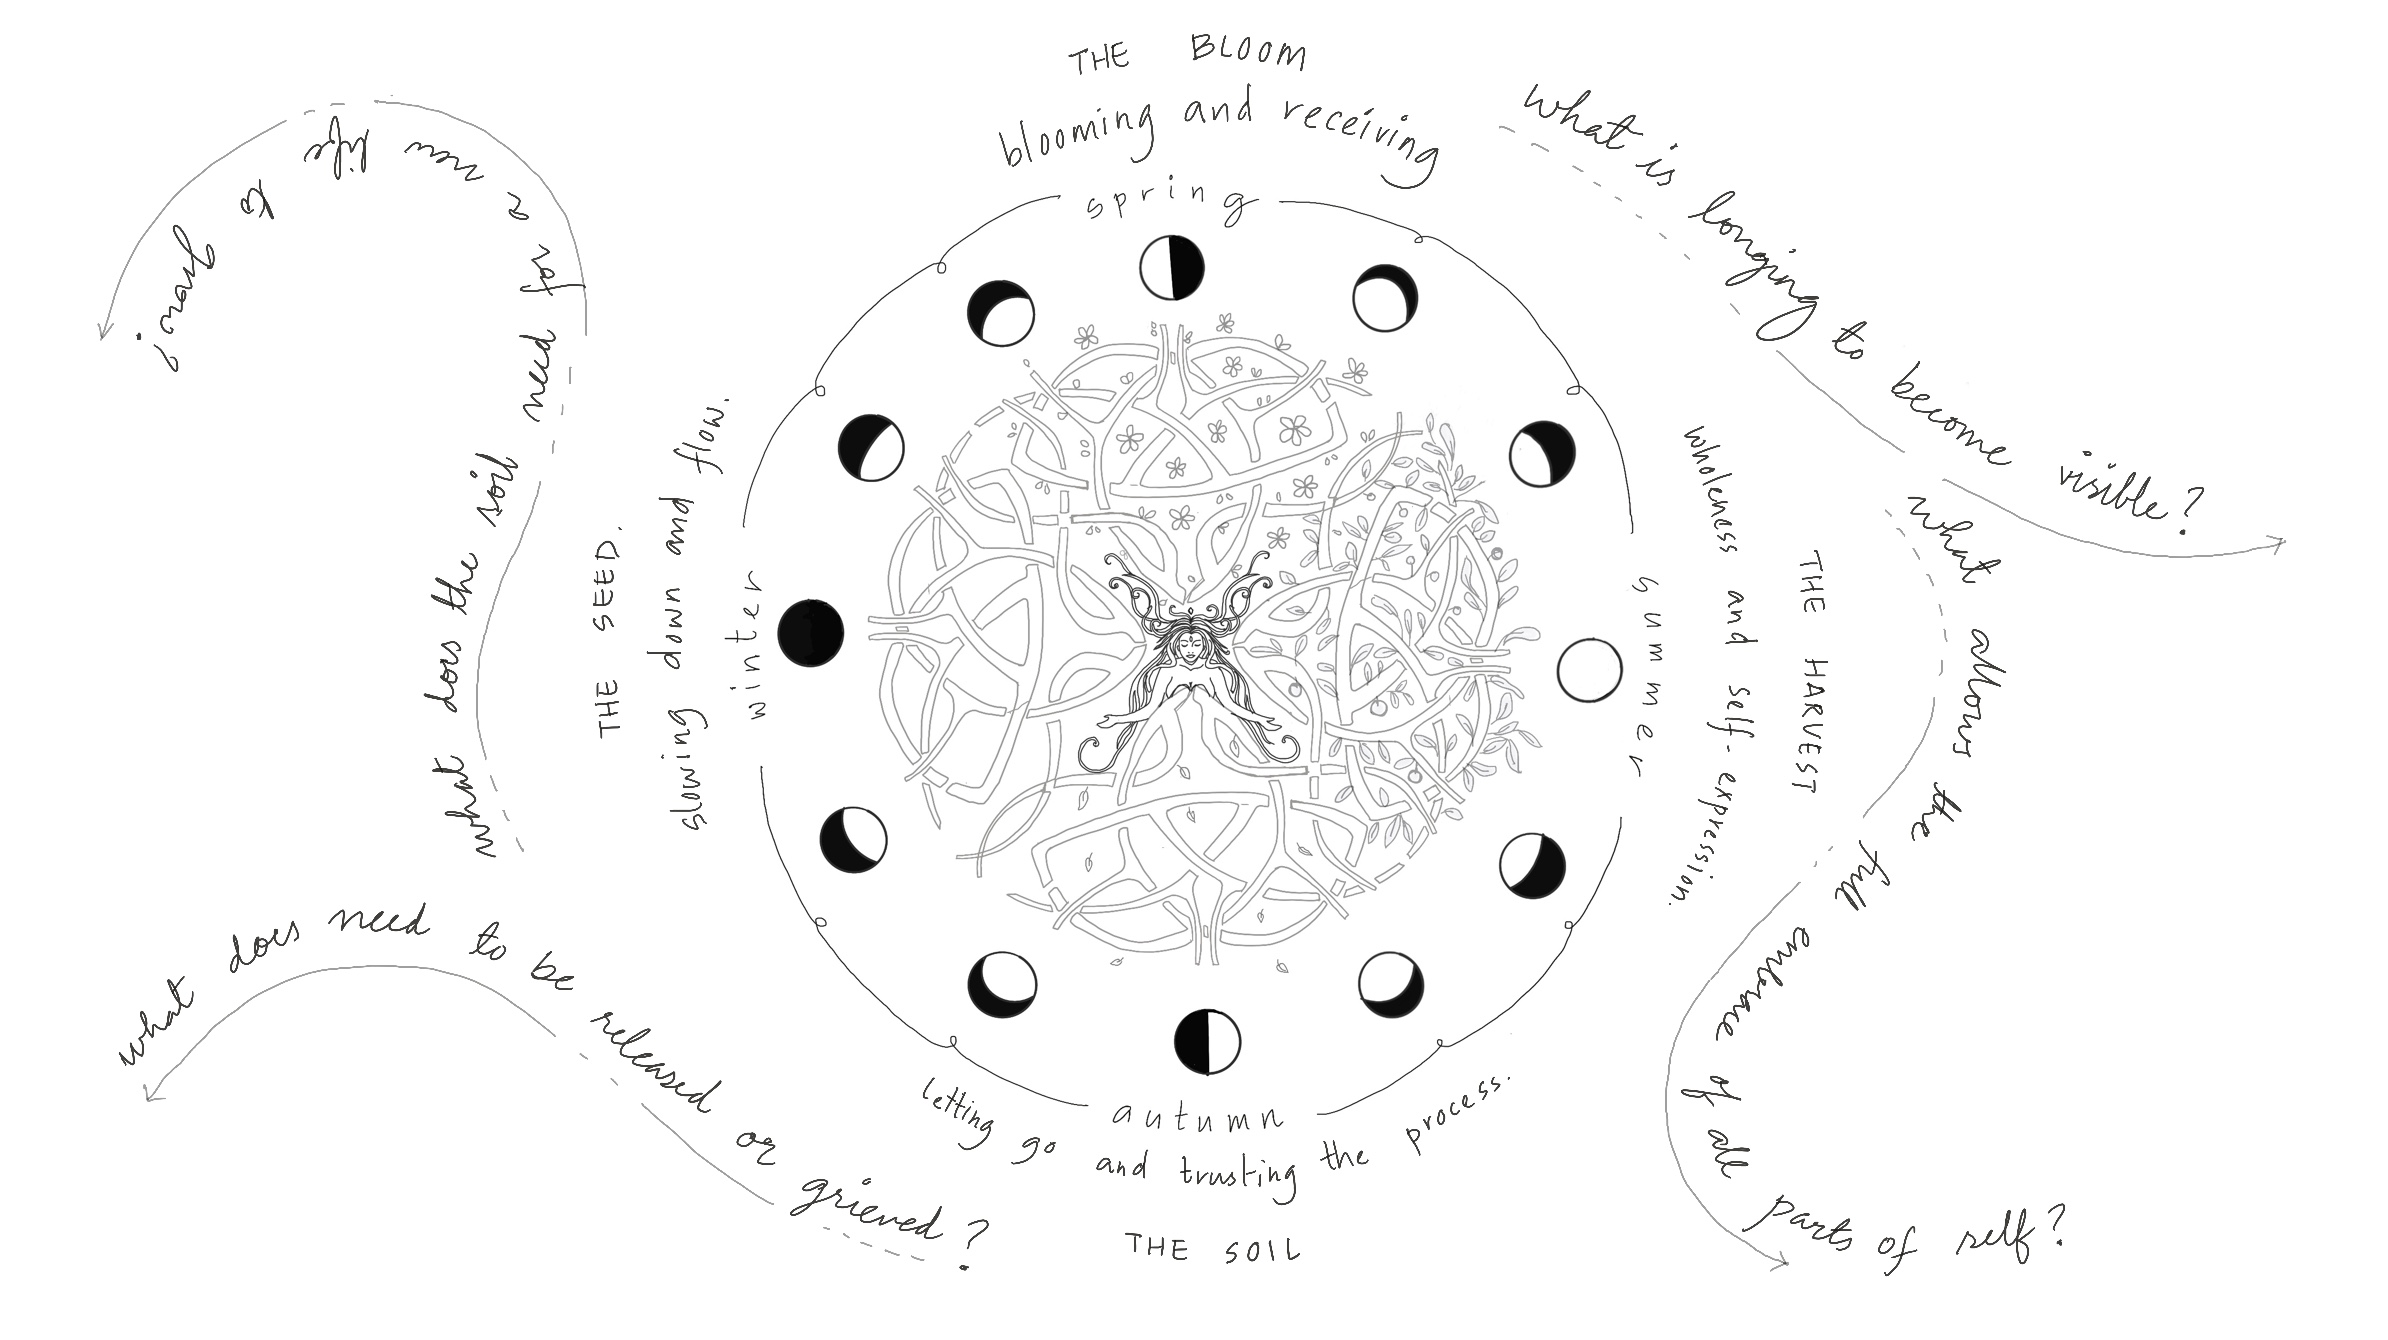 THE BLOOM
blooming and receiving
spring
what is longing to become visible?
summer
wholeness and self-expression.
THE HARVEST
what allows the full embrace of all parts of self?
autumn
letting go and trusting the process.
THE SOIL
what does need to be released or grieved?
winter
slowing down and flow.
THE SEED.
what does the soil need for a new life to grow?